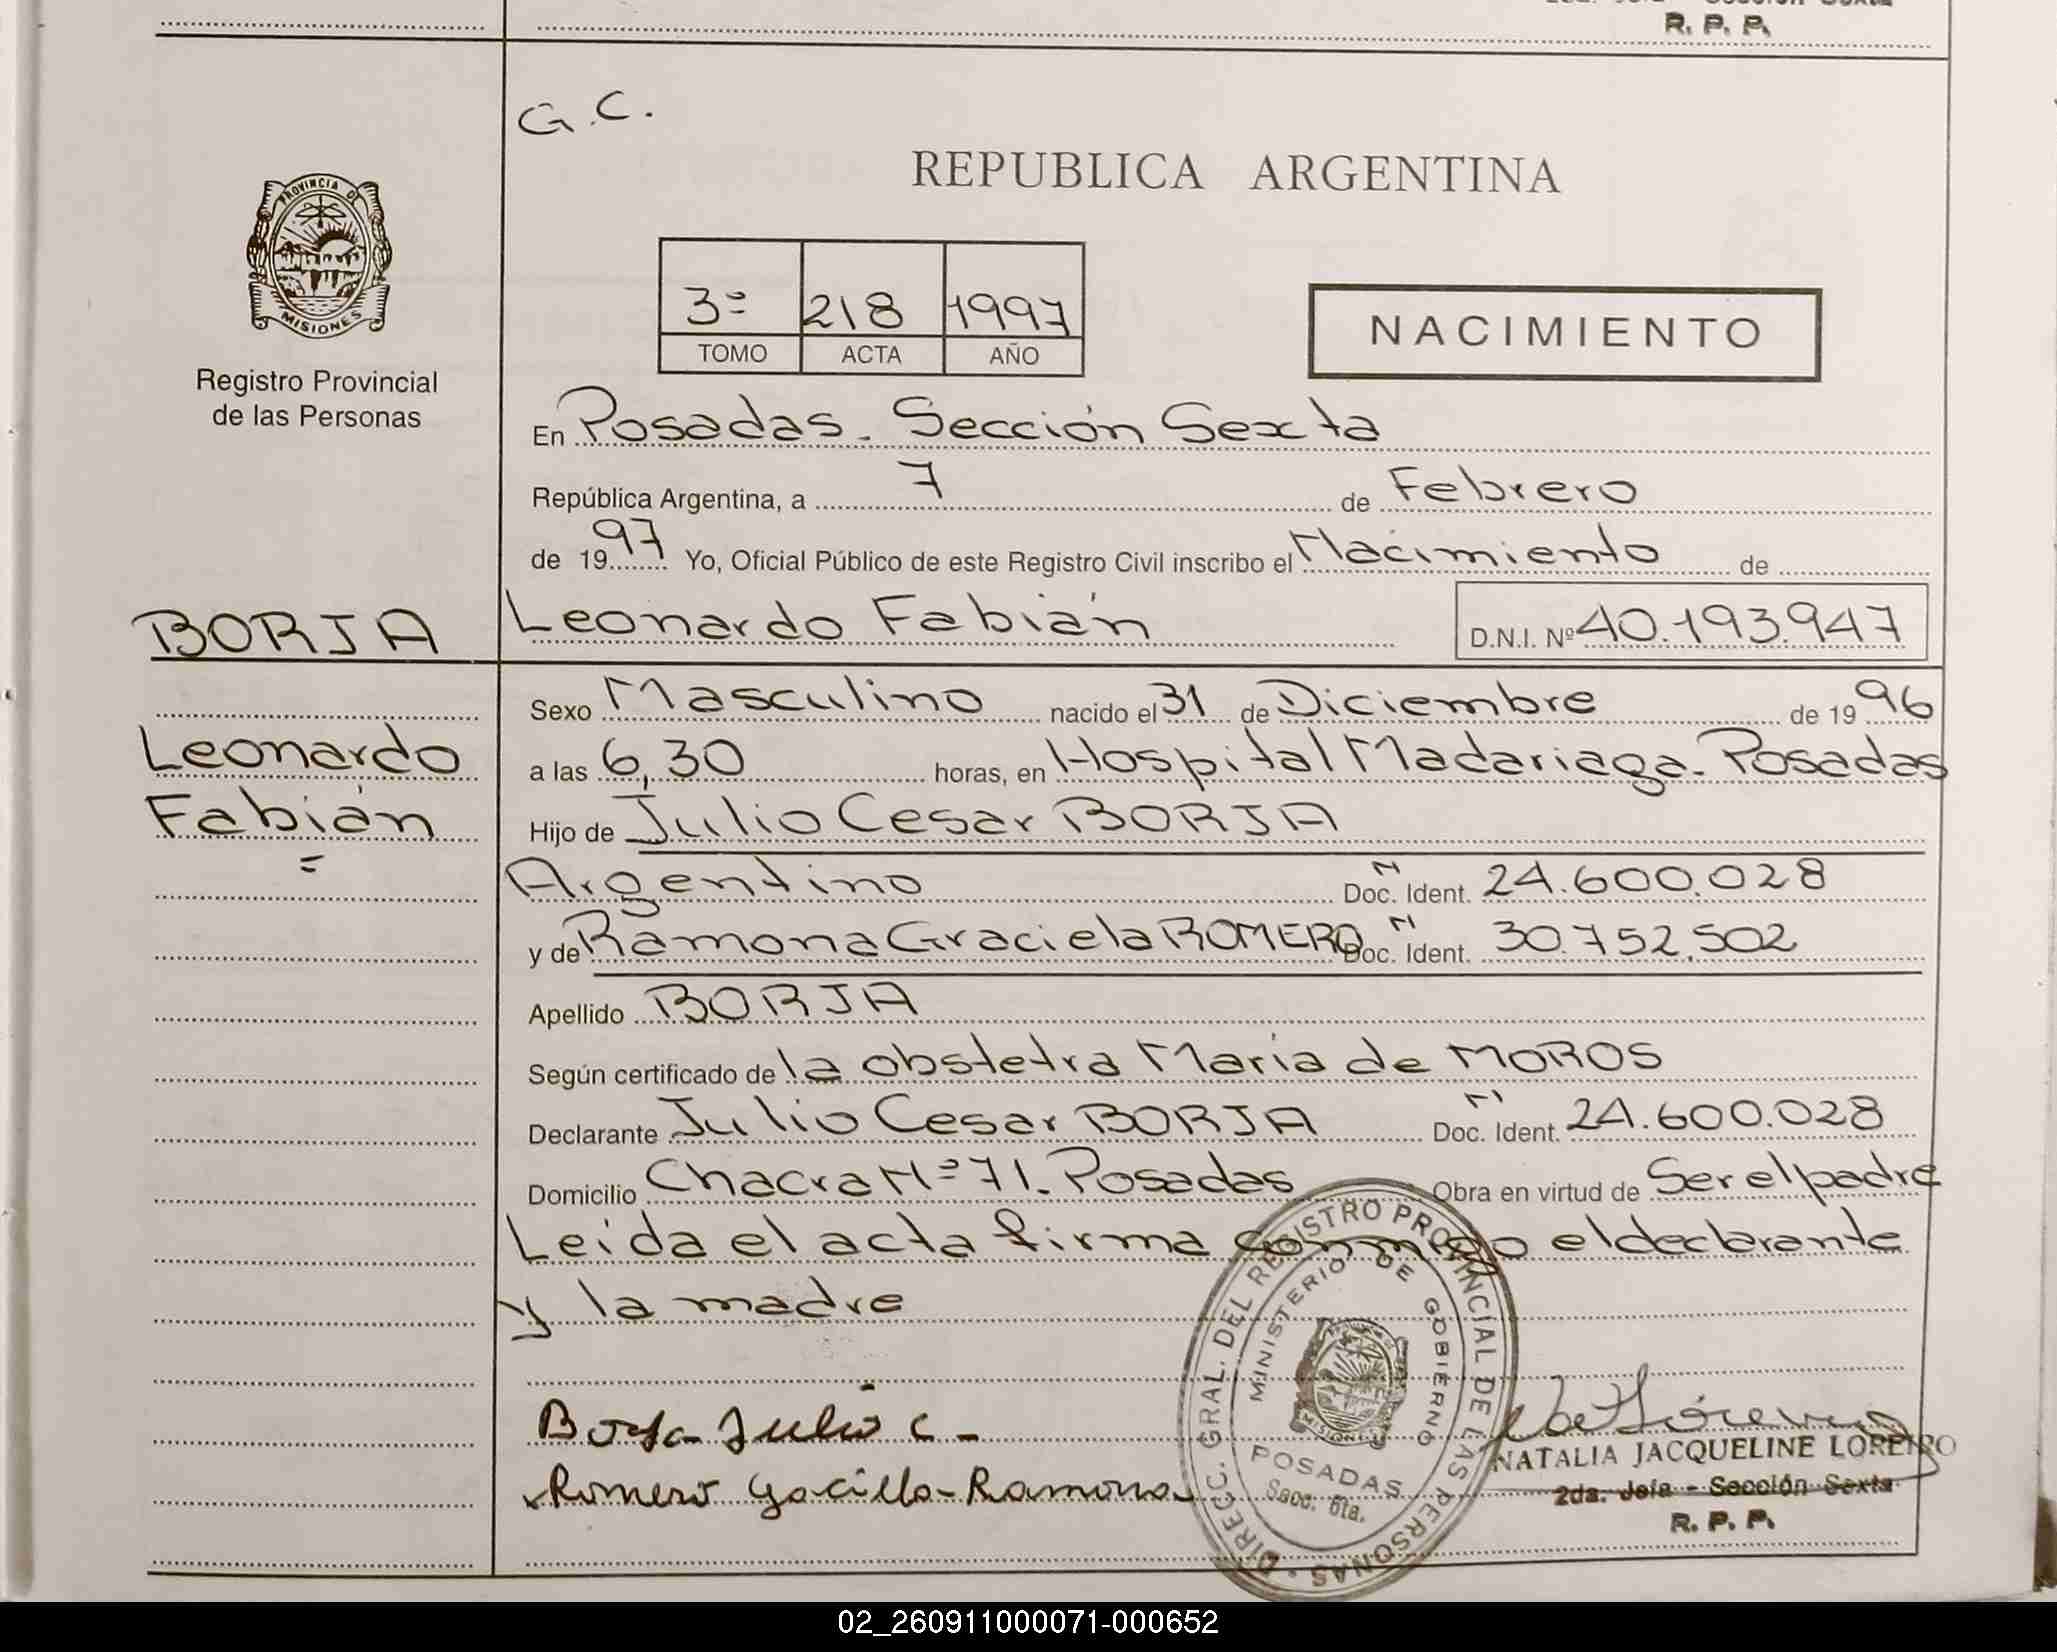 R. P. P.
G. C.
REPUBLICA ARGENTINA
PROVINCIA DE
MISIONES
Registro Provincial
de las Personas
3º 218 1997
TOMO ACTA AÑO
NACIMIENTO
En Posadas. Sección Sexta
República Argentina, a 7 de Febrero
de 1997 Yo, Oficial Público de este Registro Civil inscribo el Nacimiento de
BORJA Leonardo Fabián D.N.I. Nº 40.193.947
Sexo Masculino nacido el 31 de Diciembre de 1996
Leonardo
a las 6,30 horas, en Hospital Madariaga. Posadas
Fabián
Hijo de Julio Cesar BORJA
=
Argentino Doc. Ident. N 24.600.028
y de Ramona Graciela ROMERO Doc. Ident. N 30.752.502
Apellido BORJA
Según certificado de la obstetra Maria de MOROS
Declarante Julio Cesar BORJA Doc. Ident. N 24.600.028
Domicilio Chacra Nº 71. Posadas Obra en virtud de Ser el padre
Leida el acta firma conmigo el declarante
y la madre
DIRECC. GRAL. DEL REGISTRO PROVINCIAL DE LAS PERSONAS
MINISTERIO DE GOBIERNO
MISIONES
POSADAS
Secc. 6ta.
Borja Julio C.
Romero Gracille Ramona
NATALIA JACQUELINE LOREIRO
2da. Jefa - Sección Sexta
R. P. P.
02_260911000071-000652